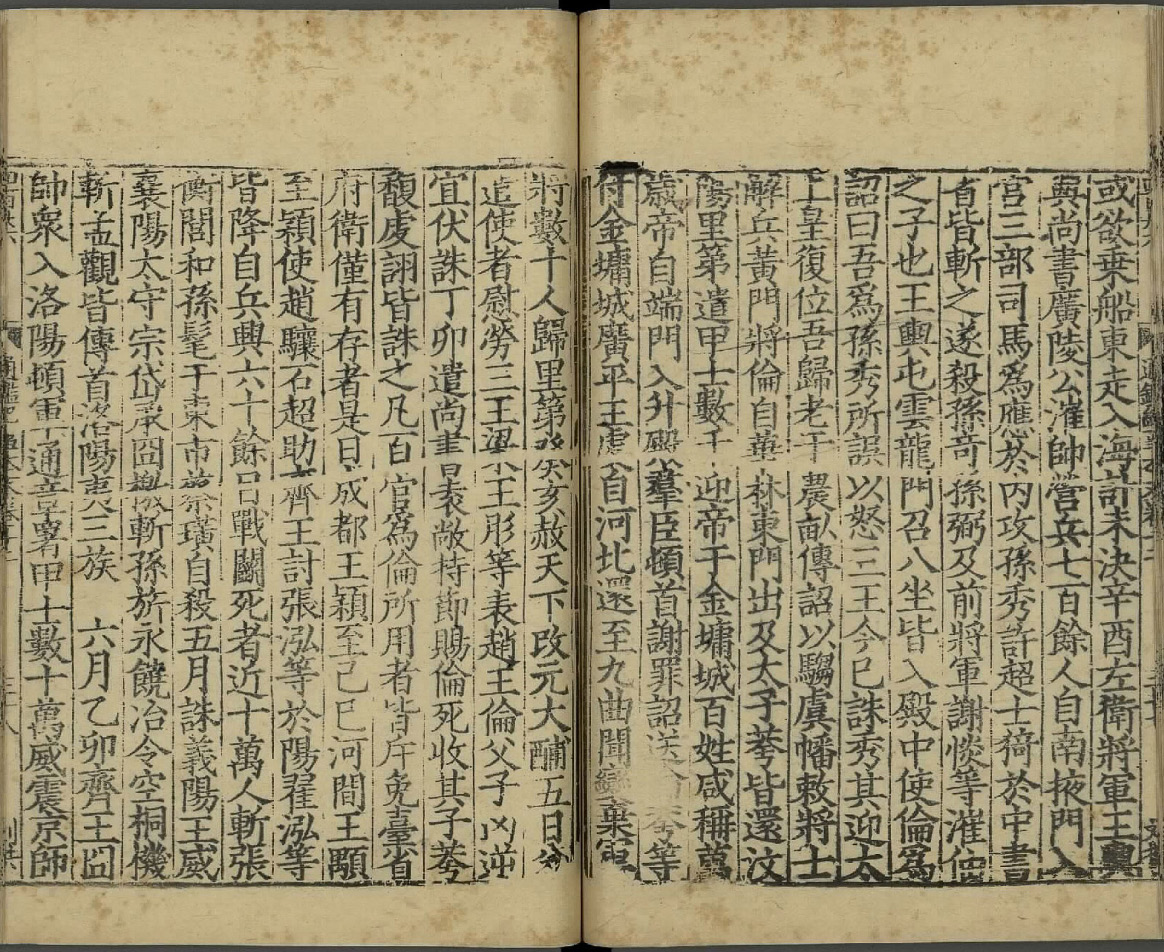 或欲乗船東走入海計未決辛酉左衛將軍王輿
與尚書廣陵公漼帥營兵七百餘人自南掖門入
宫三部司馬爲應於内攻孫秀許超士猗於中書
省皆斬之遂殺孫奇孫弼及前將軍謝惔等漼伷
之子也王輿屯雲龍門召八坐皆入殿中使倫爲
詔曰吾爲孫秀所誤以怒三王今巳誅秀其迎太
上皇復位吾歸老于農畝傳詔以騶虞幡敕將士
解兵黄門將倫自華林東門出及太子荂皆還汶
陽里第遣甲士數千迎帝于金墉城百姓咸稱萬
歳帝自端門入升殿羣臣頓首謝罪詔送倫荂等
付金墉城廣平王虔自河北還至九曲聞變棄軍
將數十人歸里第癸亥赦天下改元大酺五日分
遣使者慰勞三王梁王肜等表趙王倫父子凶逆
宜伏誅丁卯遣尚書袁敞持節賜倫死收其子荂
馥虔詡皆誅之凡百官爲倫所用者皆斥免臺省
府衛僅有存者是日成都王穎至己巳河間王顒
至穎使趙驤石超助齊王討張泓等於陽翟泓等
皆降自兵興六十餘日戰鬭死者近十萬人斬張
衡閭和孫髦于東市蔡璜自殺五月誅義陽王威
襄陽太守宗岱承冏檄斬孫旂永饒冶令空桐機
斬孟觀皆傳首洛陽夷三族 六月乙卯齊王冏
帥衆入洛陽頓軍通章署甲士數十萬威震京師